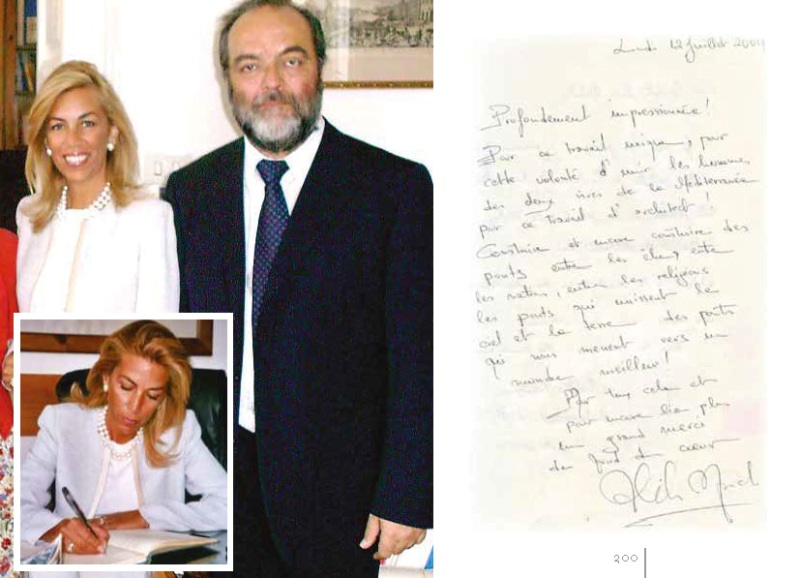 Lundi 12 Juillet 2004
Profondement impressionnée!
Pour ce travail unique, pour
cette volonté d'unir les hommes
des deux rives de la Mediterranée
pour ce travail d'architect!
Construire et encore construire des
ponts entre les êtres, entre
les nations, entre les religions
les ponts qui unissent le
ciel et la terre des ponts
qui nous menent vers un
monde meilleur!
Pour tout cela et
pour encore bien plus
un grand merci
du fond du cœur
200